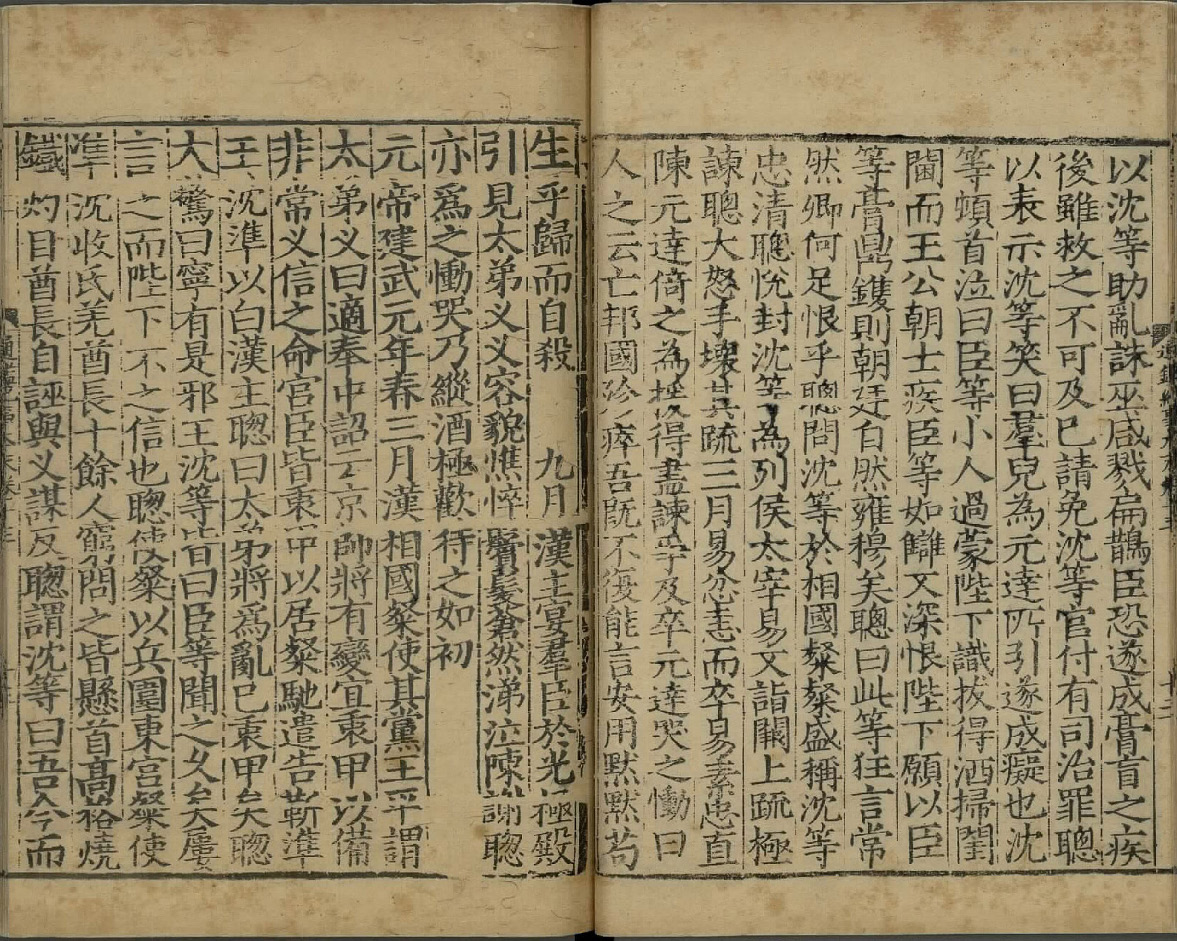 以沈等助亂誅巫咸戮扁鵲臣恐遂成膏肓之疾
後雖救之不可及已請免沈等官付有司治罪聰
以表示沈等笑曰羣兒為元達所引遂成癡也沈
等頓首泣曰臣等小人過蒙陛下識拔得洒掃閨
閤而王公朝士疾臣等如讎又深恨陛下願以臣
等膏鼎鑊則朝廷自然雍穆矣聰曰此等狂言常
然卿何足恨乎聰問沈等於相國粲粲盛稱沈等
忠清聰悅封沈等為列侯太宰易又詣闕上疏極
諫聰大怒手壞其疏三月易忿恚而卒易素忠直
陳元達倚之為援得盡諫爭及卒元達哭之慟曰
人之云亡邦國殄瘁吾既不復能言安用默默苟
生乎歸而自殺 九月漢主宴羣臣於光極殿
引見太弟乂乂容貌憔悴鬢髮蒼然涕泣陳謝聰
亦爲之慟哭乃縱酒極歡待之如初
元帝建武元年春三月漢相國粲使其黨王平謂
太弟乂曰適奉中詔云京師將有變宜衷甲以備
非常乂信之命官臣皆衷甲以居粲馳遣告靳準
王沈準以白漢主聰曰太弟將爲亂已衷甲矣聰
大驚曰寧有是邪王沈等皆曰臣等聞之久矣屢
言之而陛下不之信也聰使粲以兵圍東宮粲使
準沈收氐羌酋長十餘人窮問之皆懸首高格燒
鐵灼目酋長自誣與乂謀反聰謂沈等曰吾今而